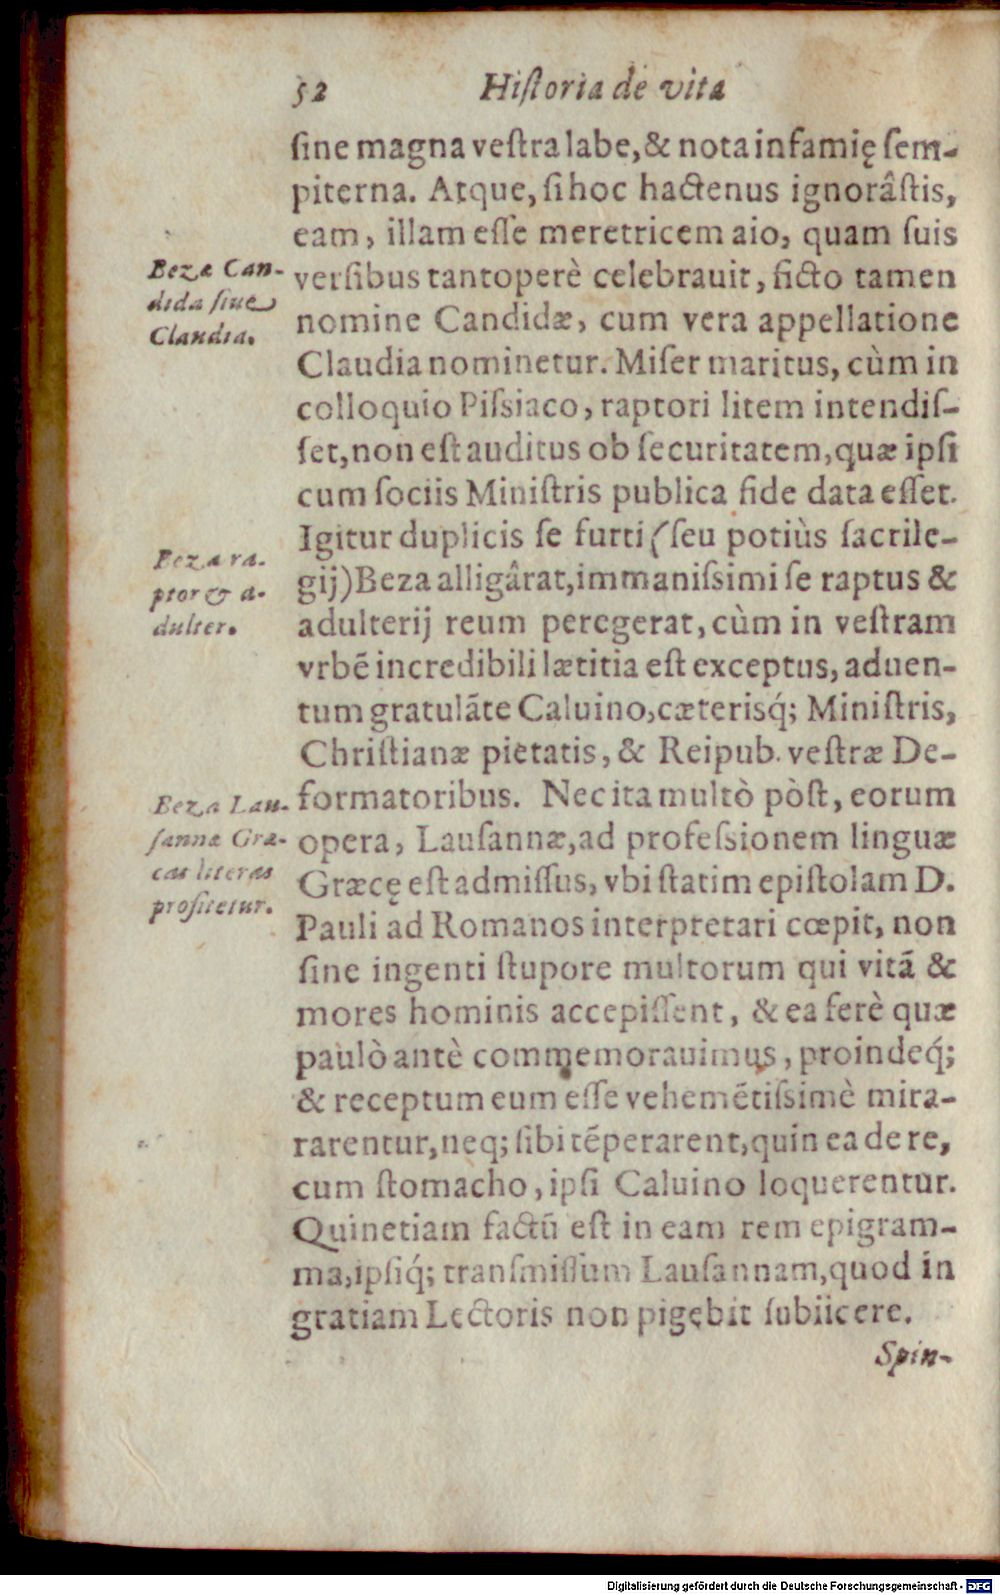 52 Hiſtoria de vita
ſine magna veſtra labe, & nota infamię ſem-
piterna. Atque, ſi hoc hactenus ignorâſtis,
eam, illam eſſe meretricem aio, quam ſuis
verſibus tantoperè celebrauit, ficto tamen
nomine Candidæ, cum vera appellatione
Claudia nominetur. Miſer maritus, cùm in
colloquio Piſsiaco, raptori litem intendiſ-
ſet, non eſt auditus ob ſecuritatem, quæ ipſi
cum ſociis Miniſtris publica fide data eſſet.
Igitur duplicis ſe furti (ſeu potiùs ſacrile-
gij) Beza alligârat, immaniſsimi ſe raptus &
adulterij reum peregerat, cùm in veſtram
vrbẽ incredibili lætitia eſt exceptus, aduen-
tum gratulãte Caluino, cæterisq́; Miniſtris,
Chriſtianæ pietatis, & Reipub. veſtræ De-
formatoribus. Nec ita multò pòſt, eorum
opera, Lauſannæ, ad profeſsionem linguæ
Græcę eſt admiſſus, vbi ſtatim epiſtolam D.
Pauli ad Romanos interpretari cœpit, non
ſine ingenti ſtupore multorum qui vitã &
mores hominis accepiſſent, & ea ferè quæ
paulò antè commemorauimus, proindeq́;
& receptum eum eſſe vehemẽtiſsimè mira-
rarentur, neq; ſibi tẽperarent, quin ea de re,
cum ſtomacho, ipſi Caluino loquerentur.
Quinetiam factũ eſt in eam rem epigram-
ma, ipſiq́; tranſmiſſum Lauſannam, quod in
gratiam Lectoris non pigębit ſubiicere.
Spin-
Bezæ Can-
dida ſiue
Claudia.
Beza ra-
ptor & a-
dulter.
Beza Lau-
ſannæ Græ-
cas literas
profitetur.
Digitalisierung gefördert durch die Deutsche Forschungsgemeinschaft - DFG